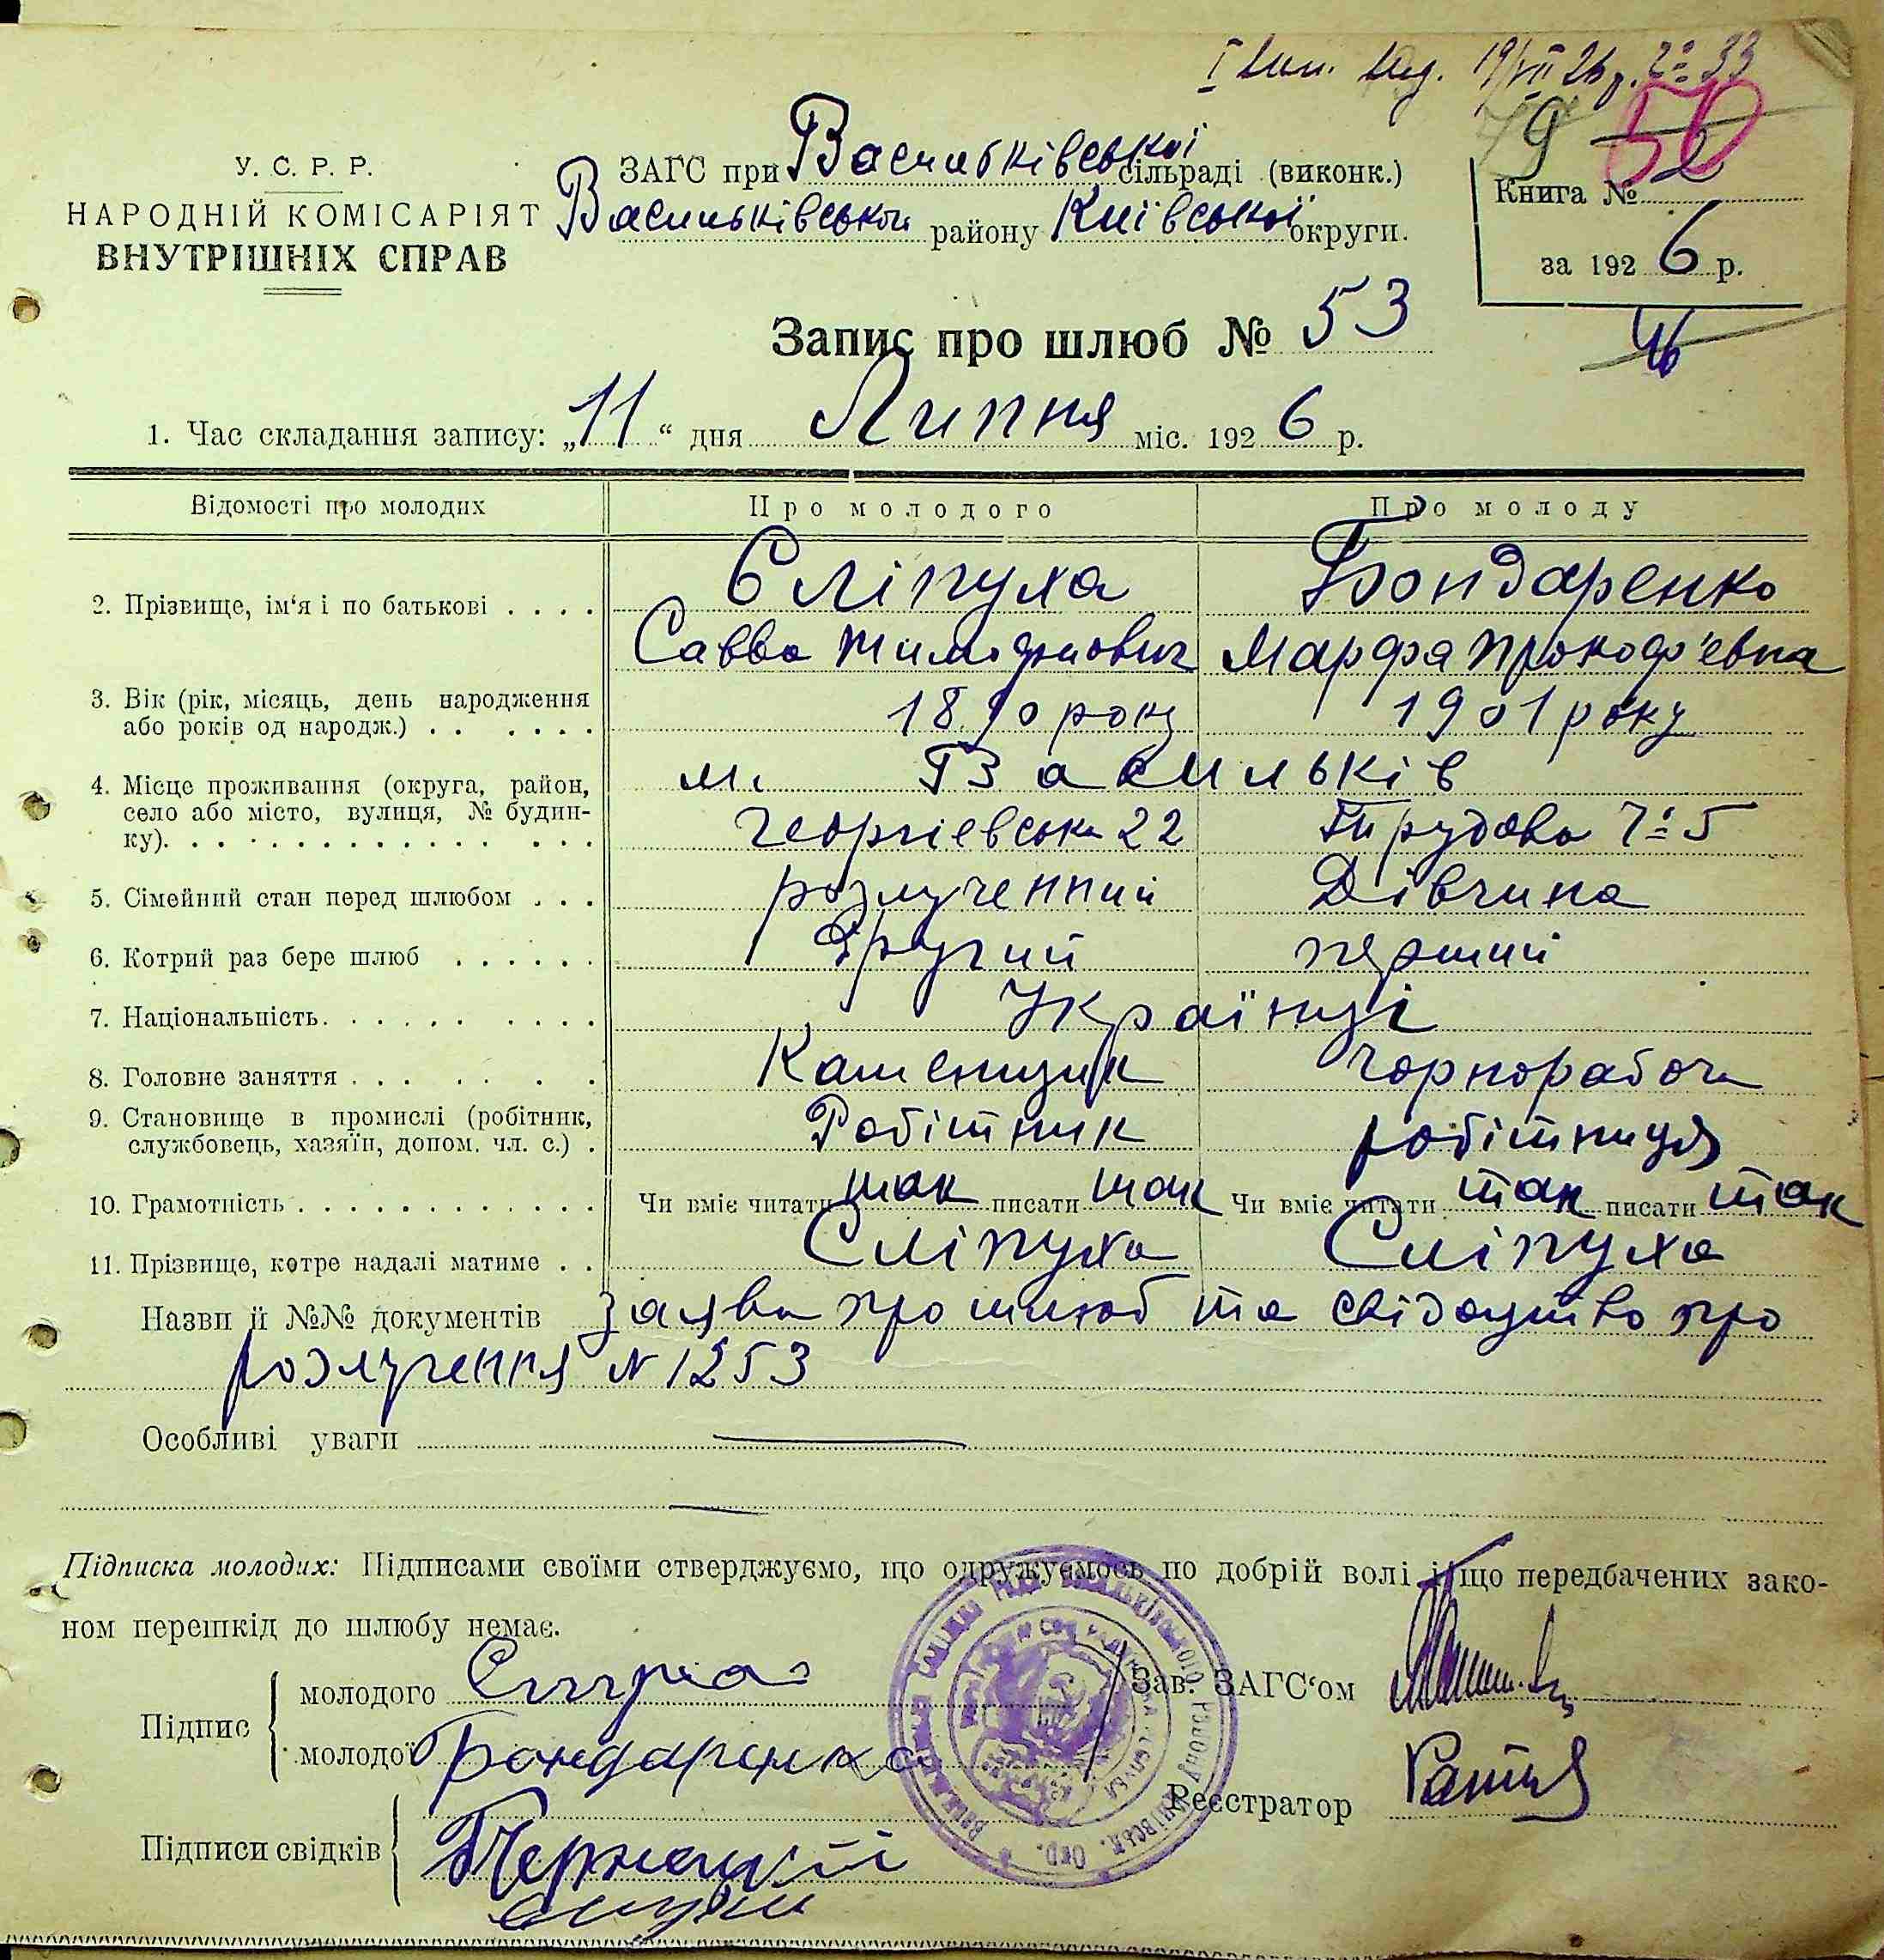 19/VII 26 р. № 33
79 50
У. С. Р. Р.
НАРОДНІЙ КОМІСАРІЯТ
ВНУТРІШНІХ СПРАВ
ЗАГС при Васильківської сільраді (виконк.)
Васильківського району Київської округи.
Книга № 2
за 1926 р.
46
Запис про шлюб № 53
1. Час складання запису: „11“ дня Липня міс. 1926 р.
Відомості про молодих Про молодого Про молоду
2. Прізвище, ім‘я і по батькові . . . . Сліпуха Бондаренко
Савва Тимофієвич Марфа Прокоф'евна
3. Вік (рік, місяць, день народження або років од народж.) . . . . . . 1890 року 1901 року
4. Місце проживання (округа, район, село або місто, вулиця, № будинку). м. Васильків
Георгіевська 22 Трудова № 5
5. Сімейний стан перед шлюбом . . . розлученний Дівчина
6. Котрий раз бере шлюб . . . . . . Другий перший
7. Національність. . . . . . . . . . Українці
8. Головне заняття . . . . . . . . Каменщик Чорнорабоча
9. Становище в промислі (робітник, службовець, хазяїн, допом. чл. с.) . Робітник робітниця
10. Грамотність . . . . . . . . . . . . Чи вміє читати так писати так Чи вміє читати так писати так
11. Прізвище, котре надалі матиме . . Сліпуха Сліпуха
Назви й №№ документів заява про шлюб та свідоцтво про
розлучення N 1253
Особливі уваги
Підписка молодих: Підписами своїми стверджуємо, що одружуємось по добрій волі і що передбачених зако-
ном перешкід до шлюбу немає.
Підпис
молодого
молодої Бондаренко
Зав. ЗАГС‘ом
Реєстратор
Підписи свідків